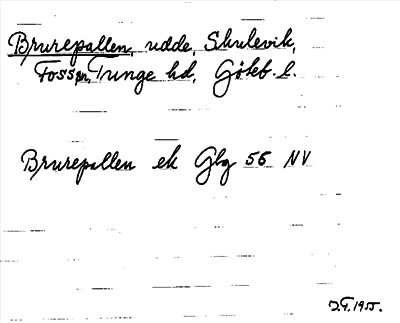 Brurepallen, udde, Skulevik,
Foss sn, Tunge hd, Göteb. l.
Brurepallen ek Gbg 56 NV
1955.